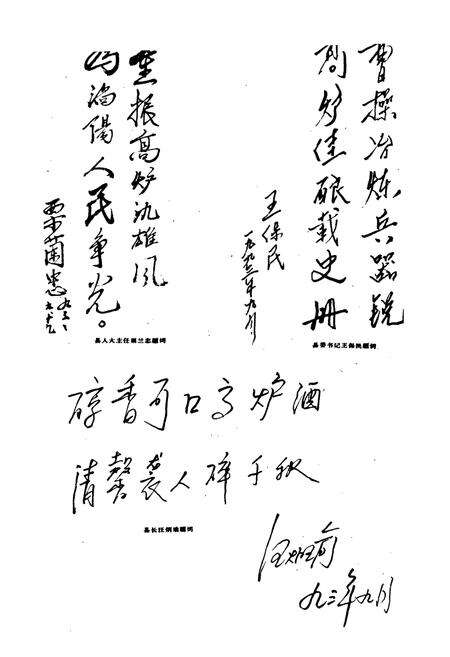 曹操冶炼兵器锐
高炉佳酿载史册
王保民
一九九三年九月
县委书记王保民题词
重振高炉氿雄风
为涡阳人民争光。
栗蘭志
县人大主任栗兰志题词
醇香可口高炉酒
清馨袭人醉千秋
汪炳
九三年九月
县长汪炳题词